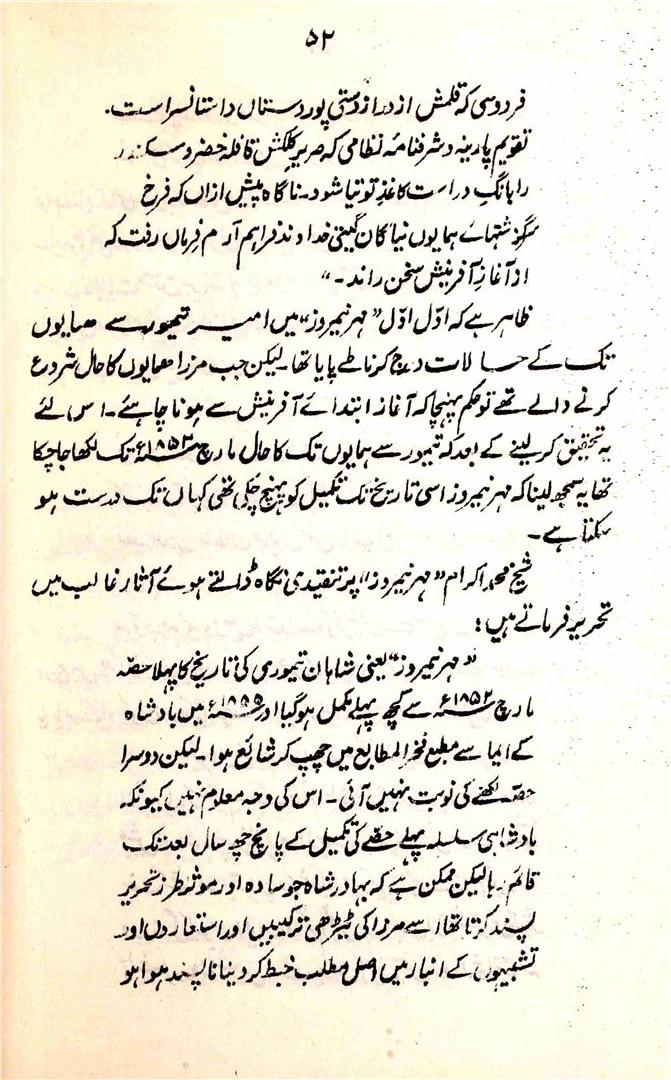 ۵۲
فردوسی کہ قلمش از دراز دستی پور دستاں داستانسراست۔
تقویم پارینہ و شرفنامہ نظامی کہ صریر کلکش قافلہ خضر و سکندر
را بانگِ دراست کاغذِ توتیا شود۔ ناگاہ پیش ازاں کہ فرخ
سرگزشتہاے ہمایوں نیاگان گیتی خداوند فراہم آرم فرماں رفت کہ
از آغازِ آفرینش سخن راند۔"
ظاہر ہے کہ اوّل اوّل "مہر نیمروز" میں امیر تیمور سے ہمایوں
تک کے حالات درج کرنا طے پایا تھا۔ لیکن جب مرزا ہمایوں کا حال شروع
کرنے والے تھے تو حکم پہنچا کہ آغاز ابتدائے آفرینش سے ہونا چاہئے۔ اس لئے
یہ تحقیق کر لینے کے بعد کہ تیمور سے ہمایوں تک کا حال مارچ ۱۸۵۲ء تک لکھا جا چکا
تھا یہ سمجھ لینا کہ مہر نیمروز اسی تاریخ تک تکمیل کو پہنچ چکی تھی کہاں تک درست ہو
سکتا ہے۔
شیخ محمد اکرام "مہر نیمروز" پر تنقیدی نگاہ ڈالتے ہوئے آثار غالب میں
تحریر فرماتے ہیں؛
"مہر نیمروز" یعنی شاہان تیموری کی تاریخ کا پہلا حصّہ
مارچ ۱۸۵۲ء سے کچھ پہلے مکمل ہو گیا اور ۱۸۵۵ء میں بادشاہ
کے ایما سے مطبع فخر المطابع میں چھپ کر شائع ہوا۔ لیکن دوسرا
حصّہ لکھنے کی نوبت نہیں آئی۔ اس کی وجہ معلوم نہیں کیونکہ
بادشاہی سلسلہ پہلے حصّے کی تکمیل کے پانچ چھ سال بعد تک
قائم رہا لیکن ممکن ہے کہ بہادر شاہ جو سادہ اور موثر طرز تحریر
پسند کرتا تھا اسے مرزا کی ٹیڑھی ترکیبیں اور استعاروں اور
تشبیہوں کے انبار میں اصل مطلب خبط کر دینا ناپسند ہوا ہو